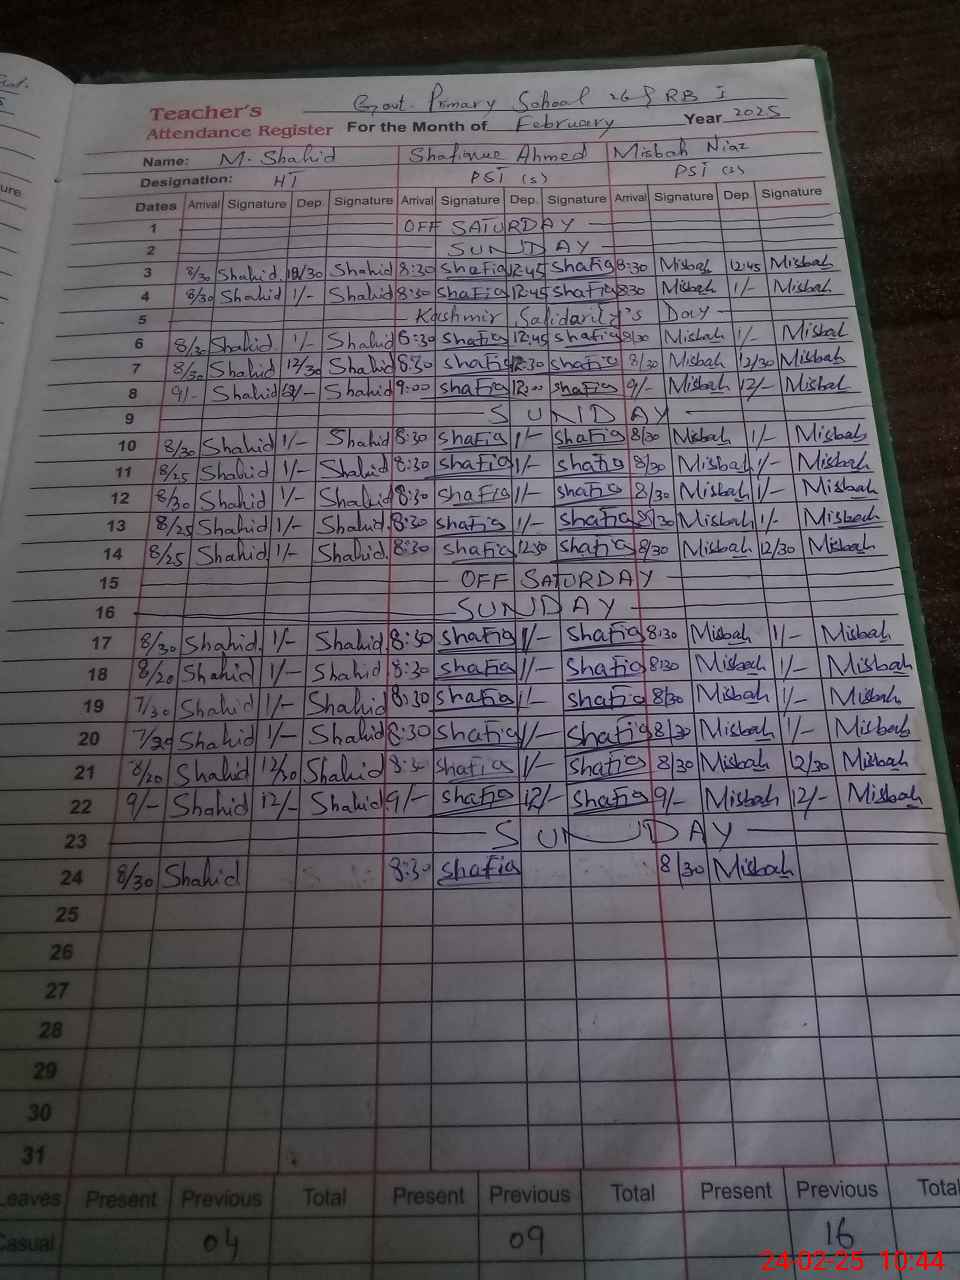 Teacher's Govt. Primary School RB I
Attendance Register For the Month of February Year 2025
Name: M. Shahid Shafique Ahmed Misbah Niaz
Designation: HT PST (s) PST (s)
Dates Arrival Signature Dep. Signature Arrival Signature Dep. Signature Arrival Signature Dep. Signature
1 OFF SATURDAY
2 SUNDAY
3 8/30 Shahid 12/30 Shahid 8:30 ShaFiq 12:45 ShaFiq 8:30 Misbah 12:45 Misbah
4 8/30 Shahid 1/- Shahid 8:30 ShaFiq 12:45 ShaFiq 8:30 Misbah 1/- Misbah
5 Kashmir Solidarity's Day
6 8/30 Shahid 1/- Shahid 8:30 ShaFiq 12:45 ShaFiq 8/30 Misbah 1/- Misbah
7 8/30 Shahid 12/30 Shahid 8:30 ShaFiq 12:30 ShaFiq 8/30 Misbah 12/30 Misbah
8 9/- Shahid 12/- Shahid 9:00 ShaFiq 12:00 ShaFiq 9/- Misbah 12/- Misbah
9 SUNDAY
10 8/30 Shahid 1/- Shahid 8:30 ShaFiq 1/- ShaFiq 8/30 Misbah 1/- Misbah
11 8/25 Shahid 1/- Shahid 8:30 ShaFiq 1/- ShaFiq 8/30 Misbah 1/- Misbah
12 8/30 Shahid 1/- Shahid 8:30 ShaFiq 1/- ShaFiq 8/30 Misbah 1/- Misbah
13 8/25 Shahid 1/- Shahid 8:30 ShaFiq 1/- ShaFiq 8/30 Misbah 1/- Misbah
14 8/25 Shahid 1/- Shahid 8:30 ShaFiq 12:30 ShaFiq 8/30 Misbah 12/30 Misbah
15 OFF SATURDAY
16 SUNDAY
17 8/30 Shahid 1/- Shahid 8:30 ShaFiq 1/- ShaFiq 8:30 Misbah 1/- Misbah
18 8/20 Shahid 1/- Shahid 8:30 ShaFiq 1/- ShaFiq 8:30 Misbah 1/- Misbah
19 7/30 Shahid 1/- Shahid 8:30 ShaFiq 1/- ShaFiq 8/30 Misbah 1/- Misbah
20 7/30 Shahid 1/- Shahid 8:30 ShaFiq 1/- ShaFiq 8/30 Misbah 1/- Misbah
21 8/20 Shahid 12/30 Shahid 8:30 ShaFiq 1/- ShaFiq 8/30 Misbah 12/30 Misbah
22 9/- Shahid 12/- Shahid 9/- ShaFiq 12/- ShaFiq 9/- Misbah 12/- Misbah
23 SUNDAY
24 8/30 Shahid 8:30 ShaFiq 8/30 Misbah
25
26
27
28
29
30
31
Leaves Present Previous Total Present Previous Total Present Previous Total
Casual 04 09 16
24-02-25 10:44